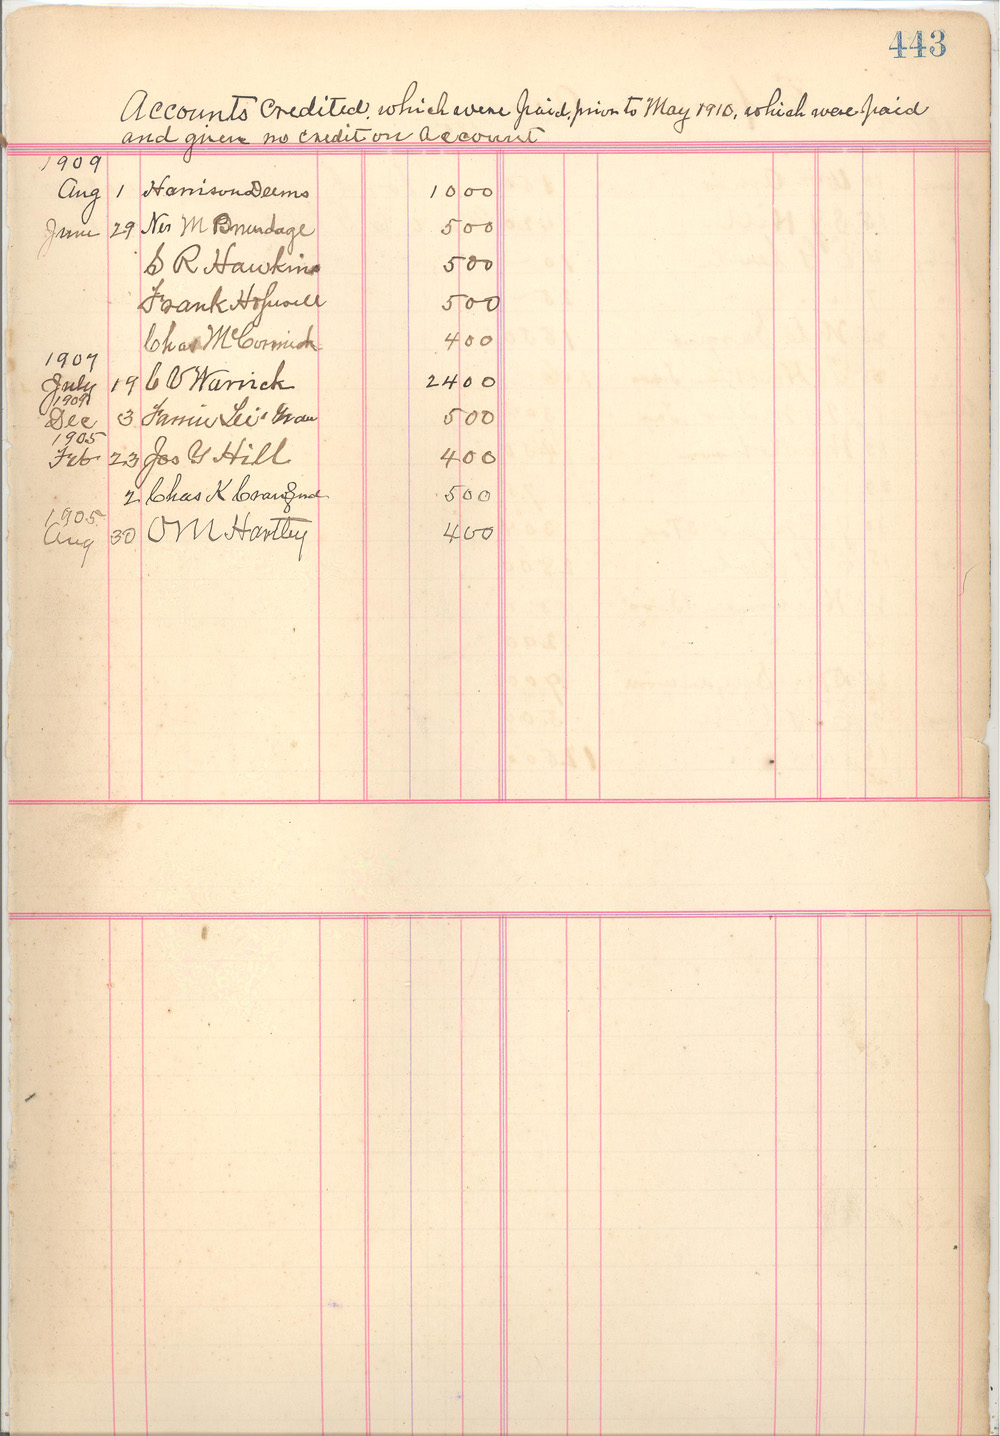 443
Accounts Credited, which were paid, prior to May 1910, which were paid
and given no credit on account
1909
Aug 1 Harrison Deems 10 00
June 29 M Brundage 5 00
S R Hawkins 5 00
Frank Hopwell 5 00
Chas McCormick 4 00
1907
July 19 C V Warrick 24 00
1909
Dec 3 Fannie 5 00
1905
Feb 23 Jos Y Hill 4 00
2 Chas K Crawford 5 00
1905
Aug 30 O M Hartley 4 00